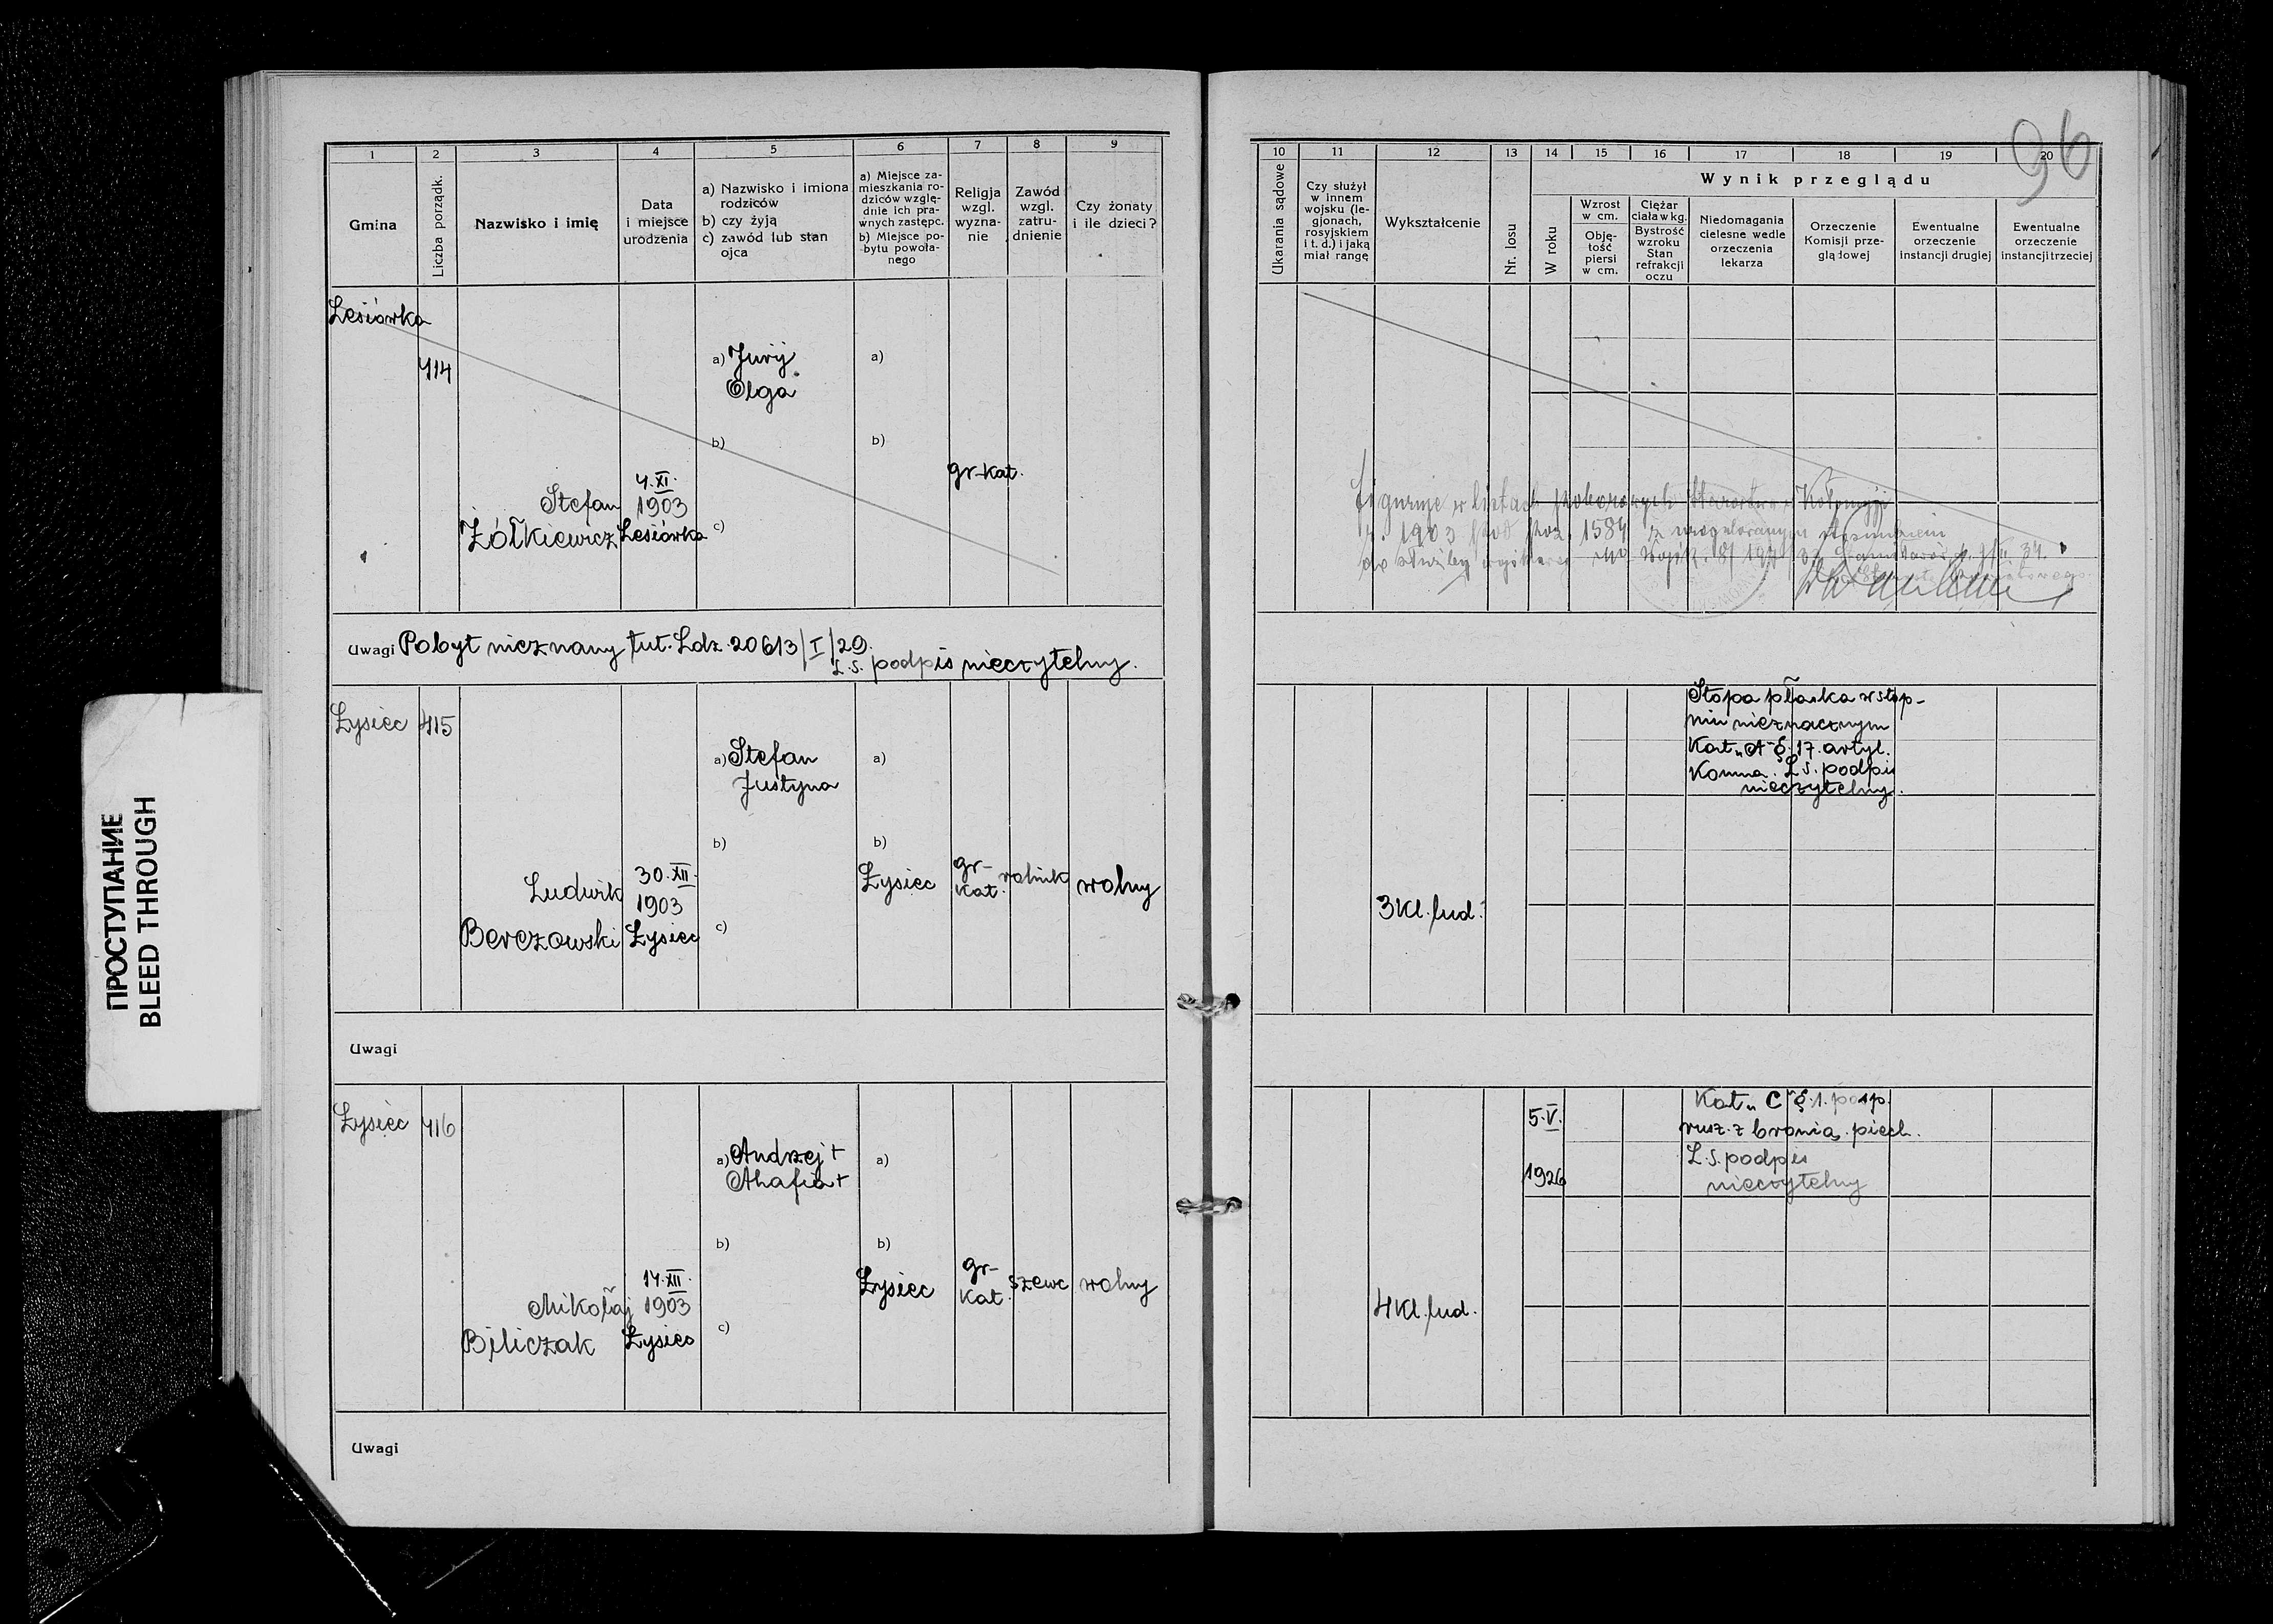 96
1 2 3 4 5 6 7 8 9
Gmina
Liczba porządk.
Nazwisko i imię
Data
i miejsce
urodzenia
a) Nazwisko i imiona
rodziców
b) czy żyją
c) zawód lub stan
ojca
a) Miejsce za-
mieszkania ro-
dziców wzglę-
dnie ich pra-
wnych zastępc.
b) Miejsce po-
bytu powoła-
nego
Religja
wzgl.
wyzna-
nie
Zawód
wzgl.
zatru-
dnienie
Czy żonaty
i ile dzieci?
10 11 12 13 14 15 16 17 18 19 20
Ukarania sądowe
Czy służył
w innem
wojsku (le-
gjonach,
rosyjskiem
i t. d.) i jaką
miał rangę
Wykształcenie
Nr. losu
Wynik przeglądu
W roku
Wzrost
w cm.
Obję-
tość
piersi
w cm.
Ciężar
ciała w kg.
Bystrość
wzroku
Stan
refrakcji
oczu
Niedomagania
cielesne wedle
orzeczenia
lekarza
Orzeczenie
Komisji prze-
glądowej
Ewentualne
orzeczenie
instancji drugiej
Ewentualne
orzeczenie
instancji trzeciej
Lesiówka
414
Stefan
Żółkiewicz
4.XI.
1903
Lesiówka
a) Jurij
Olga
b)
c)
a)
b)
gr-kat.
Figuruje w listach poborowych Starostwa w Kołomyji
r. 1903 pod poz. 1584 z uregulowanym stosunkiem
do służby wojskowej
Uwagi Pobyt nieznany tut. Ldz. 20613/I/29.
L.S. podpis nieczytelny.
Łysiec
415
Ludwik
Berezowski
30.XII.
1903
Łysiec
a) Stefan
Justyna
b)
c)
a)
b)
Łysiec
gr-
kat.
rolnik
wolny
3 kl. lud.
Stopa płaska w stop-
niu nieznacznym
Kat „A" § 17. artyl.
Konna. L.S. podpis
nieczytelny.
Uwagi
Łysiec
416
Mikołaj
Biliczak
14.XII.
1903
Łysiec
a) Andrzej +
Ahafia +
b)
c)
a)
b)
Łysiec
gr-
kat.
szewc
wolny
4 kl. lud.
5.V.
1926
Kat „C" § 1. posp.
rusz. z bronią piech.
L.S. podpis
nieczytelny
Uwagi
ПРОСТУПАНИЕ
BLEED THROUGH